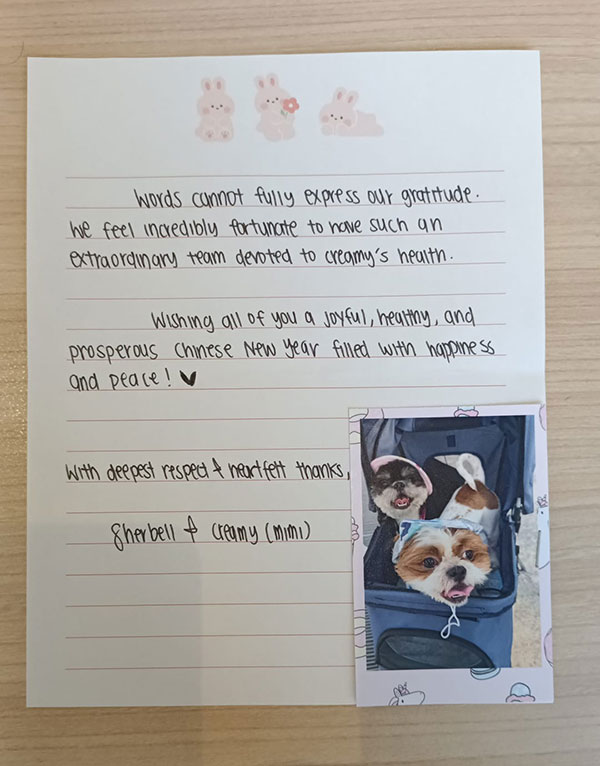 Words cannot fully express our gratitude.
We feel incredibly fortunate to have such an
extraordinary team devoted to creamy's health.
Wishing all of you a joyful, healthy, and
prosperous Chinese New Year filled with happiness
and peace! ♥
With deepest respect & heartfelt thanks,
Sherbell & Creamy (mimi)